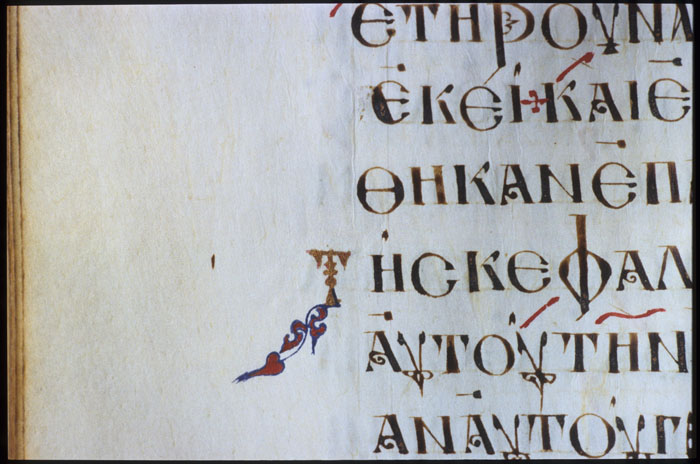 ΕΤΗΡΟΥΝΑ
ἘΚΕΙ+ΚΑΙΕ
ΘΗΚΑΝἘΠΑ
ΤΗϹΚΕΦΑΛ
ἈΥΤΟΥΤΗΝ
ΑΝἈΥΤΟΥΓ